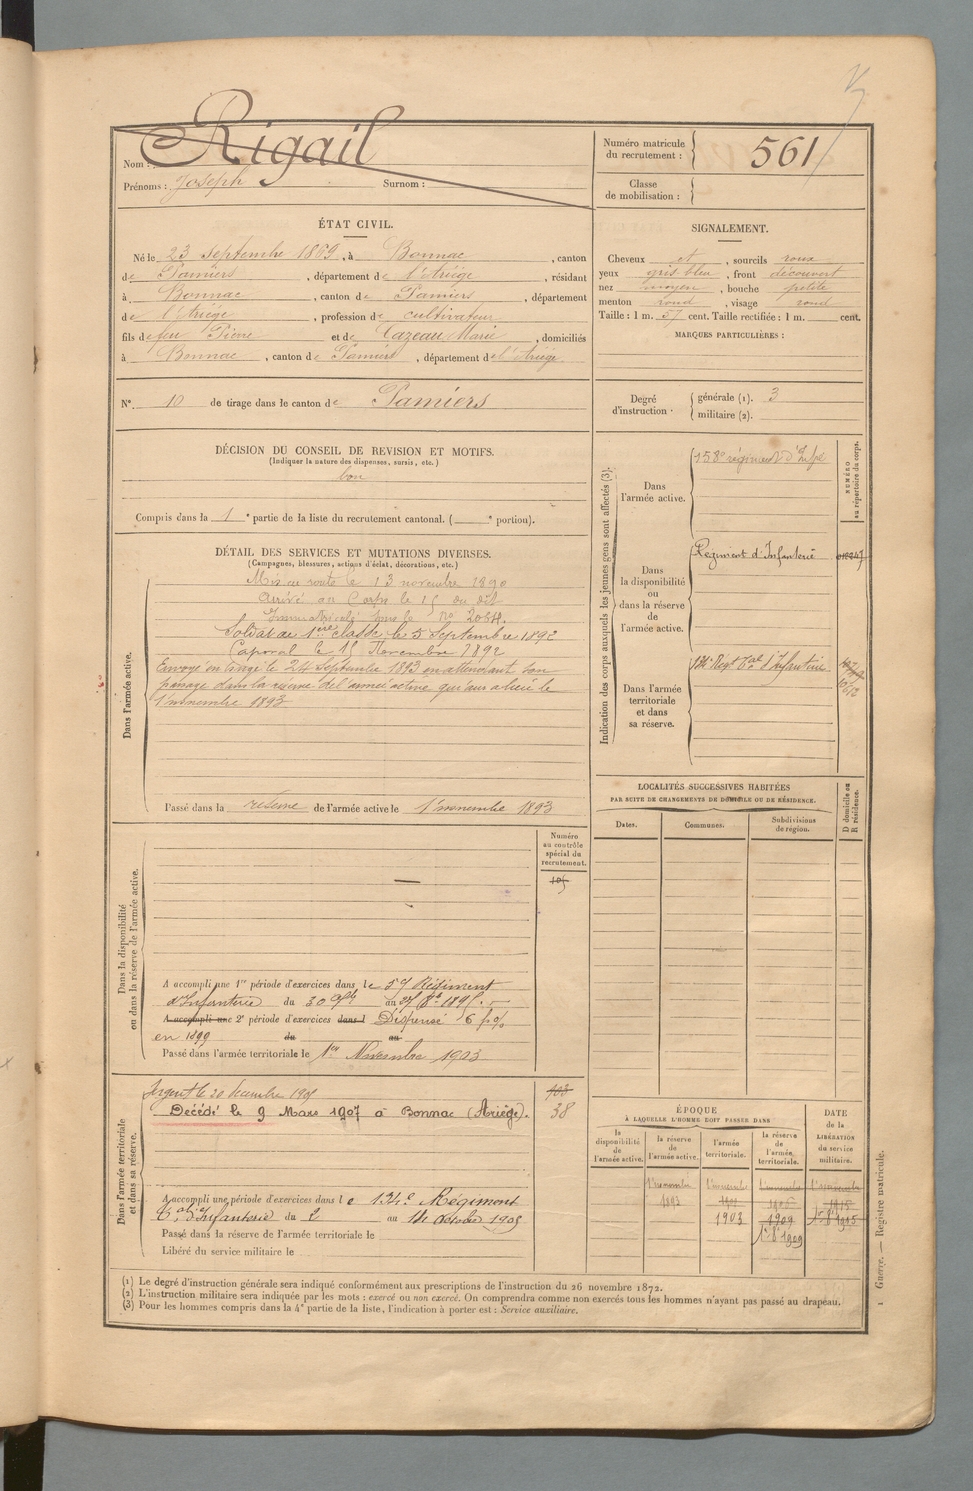 Nom : Rigail
Prénoms : Joseph Surnom :
Numéro matricule du recrutement : 561
Classe de mobilisation :
ÉTAT CIVIL.
Né le 23 septembre 1869, à Bonnac, canton
de Pamiers, département de l'Ariège, résidant
à Bonnac, canton de Pamiers, département
de l'Ariège, profession de cultivateur
fils de feu Pierre et de Cazeau Marie, domiciliés
à Bonnac, canton de Pamiers, département de l'Ariège.
N° 10 de tirage dans le canton de Pamiers
SIGNALEMENT.
Cheveux et, sourcils roux
yeux gris bleu, front découvert
nez moyen, bouche petite
menton rond, visage rond
Taille : 1 m. 57 cent. Taille rectifiée : 1 m. cent.
MARQUES PARTICULIÈRES :
Degré d'instruction : générale (1). 3
militaire (2).
DÉCISION DU CONSEIL DE REVISION ET MOTIFS.
(Indiquer la nature des dispenses, sursis, etc.)
bon
Compris dans la 1e partie de la liste du recrutement cantonal. ( e portion).
DÉTAIL DES SERVICES ET MUTATIONS DIVERSES.
(Campagnes, blessures, actions d'éclat, décorations, etc.)
Dans l'armée active.
Mis en route le 13 novembre 1890
Arrivé au Corps le 15 du dit
Immatriculé sous le No
Soldat de 1ère classe le 5 Septembre 1892
Caporal le 15 Novembre 1892
Envoyé en congé le 24 Septembre 1893 en attendant son
passage dans la réserve de l'armée active qui aura lieu le
1er novembre 1893
Passé dans la réserve de l'armée active le 1er novembre 1893
Indication des corps auxquels les jeunes gens sont affectés (3).
NUMÉRO au répertoire du corps.
Dans l'armée active.
158e régiment d'Infie
Dans la disponibilité ou dans la réserve de l'armée active.
Régiment d'Infanterie
Dans l'armée territoriale et dans sa réserve.
134e Régt Tal d'Infanterie
LOCALITÉS SUCCESSIVES HABITÉES
PAR SUITE DE CHANGEMENTS DE DOMICILE OU DE RÉSIDENCE.
Dates. Communes. Subdivisions de région.
D domicile ou R résidence.
Numéro au contrôle spécial du recrutement.
105
Dans la disponibilité ou dans la réserve de l'armée active.
A accompli une 1re période d'exercices dans le 59 Régiment
d'Infanterie du 30 au 1895.
A accompli une 2e période d'exercices dans l Dispensé
en 1899 du au
Passé dans l'armée territoriale le 1er Novembre 1903
Dans l'armée territoriale et dans sa réserve.
Sergent le 20 décembre 1905
Décédé le 9 Mars 1907 à Bonnac (Ariège).
103
38
A accompli une période d'exercices dans le 134e Régiment
Tal d'Infanterie du 2 au 14 octobre 1905
Passé dans la réserve de l'armée territoriale le
Libéré du service militaire le
ÉPOQUE
À LAQUELLE L'HOMME DOIT PASSER DANS
la disponibilité de l'armée active.
la réserve de l'armée active.
l'armée territoriale.
la réserve de l'armée territoriale.
DATE de la LIBÉRATION du service militaire.
1er novembre 1893
1903
1909
1er 8bre 1909
1er 8bre 1915
(1) Le degré d'instruction générale sera indiqué conformément aux prescriptions de l'instruction du 26 novembre 1872.
(2) L'instruction militaire sera indiquée par les mots : exercé ou non exercé. On comprendra comme non exercés tous les hommes n'ayant pas passé au drapeau.
(3) Pour les hommes compris dans la 4e partie de la liste, l'indication à porter est : Service auxiliaire.
1 Guerre. — Registre matricule.